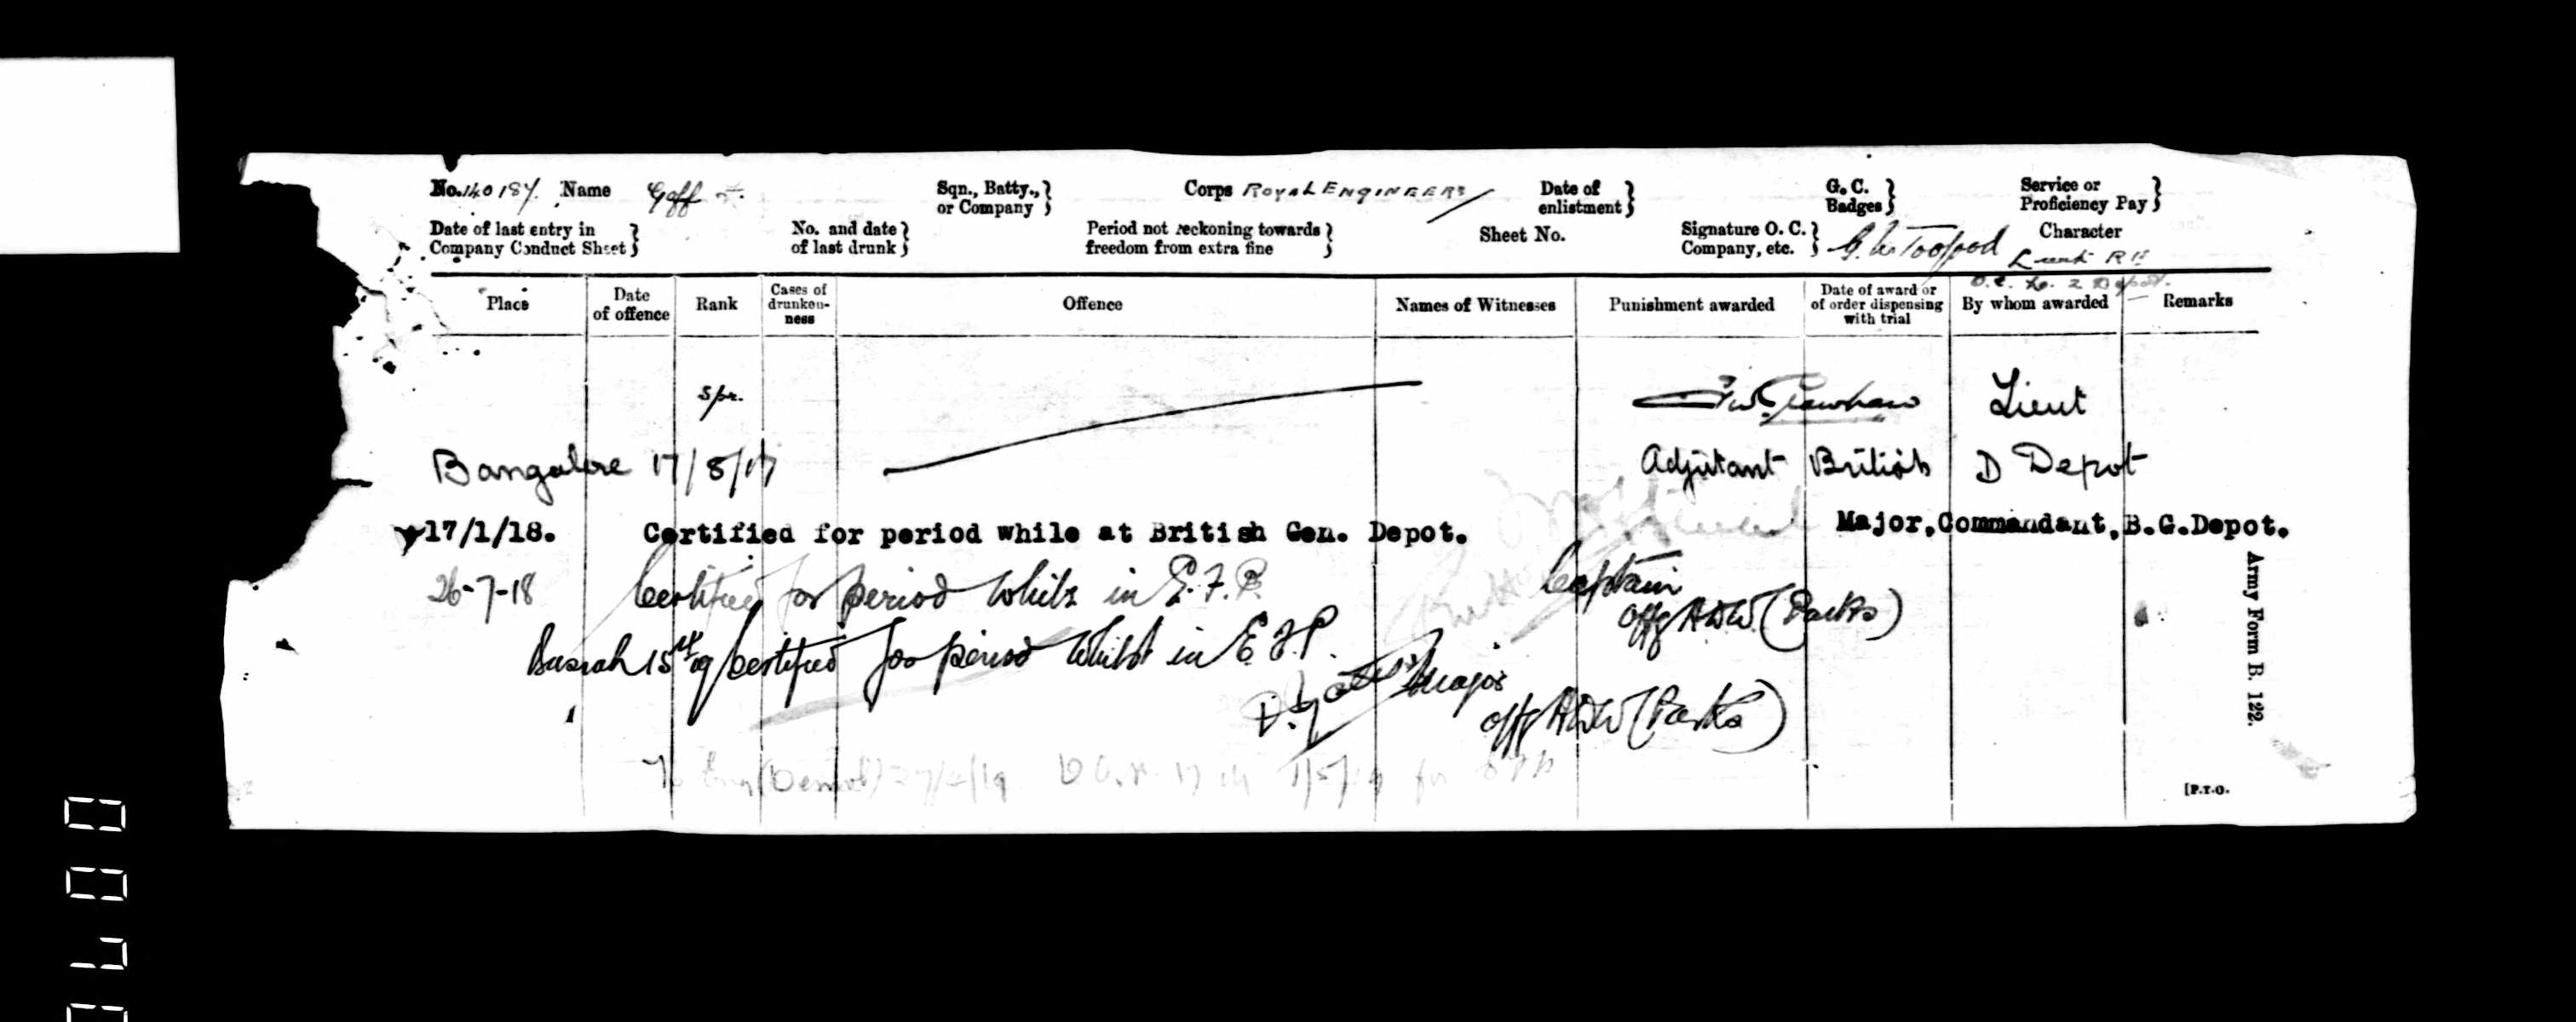 No. 140187. Name Goff Sqn., Batty., or Company } Corps ROYAL ENGINEERS Date of enlistment } G. C. Badges } Service or Proficiency Pay }
Date of last entry in Company Conduct Sheet } No. and date of last drunk } Period not reckoning towards freedom from extra fine } Sheet No. Signature O. C. Company, etc. } Toogood Character
Lieut R E
O.C. No. 2 Depot.
Place Date of offence Rank Cases of drunken-ness Offence Names of Witnesses Punishment awarded Date of award or of order dispensing with trial By whom awarded Remarks
Spr. Lieut
Bangalore 17/8/17 Adjutant British D Depot
17/1/18. Certified for period while at British Gen. Depot. Major, Commandant, B.G.Depot.
26-7-18 Certified for period whilst in E.F.P. Captain
offg ADW (Parks)
Basrah 15th Certified for period whilst in E.F.P.
Major
offg ADW (Parks)
Army Form B. 122.
[P.T.O.